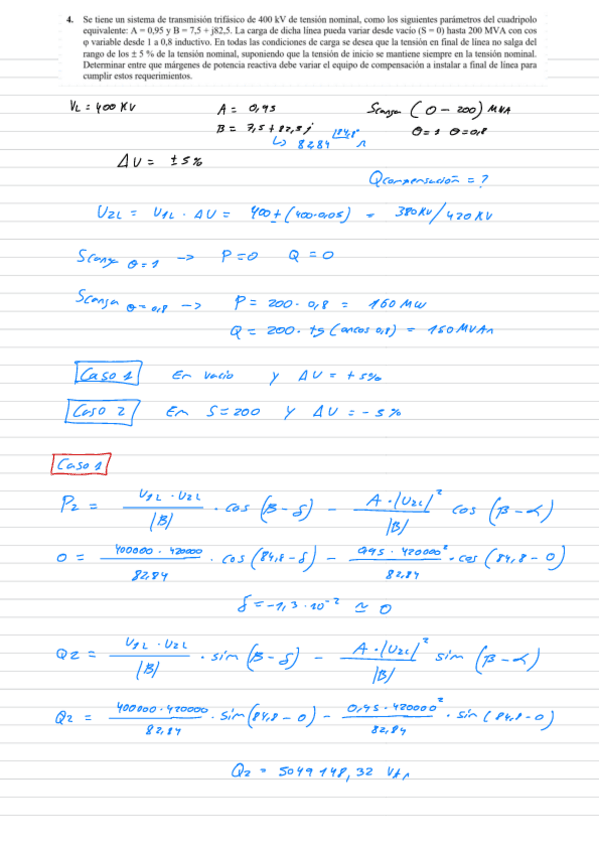 4. Se tiene un sistema de transmisión trifásico de 400 kV de tensión nominal, como los siguientes parámetros del cuadripolo
equivalente: A = 0,95 y B = 7,5 + j82,5. La carga de dicha línea pueda variar desde vacío (S = 0) hasta 200 MVA con cos
φ variable desde 1 a 0,8 inductivo. En todas las condiciones de carga se desea que la tensión en final de línea no salga del
rango de los ± 5 % de la tensión nominal, suponiendo que la tensión de inicio se mantiene siempre en la tensión nominal.
Determinar entre que márgenes de potencia reactiva debe variar el equipo de compensación a instalar a final de línea para
cumplir estos requerimientos.
VL = 400 KV A = 0,95 Scarga (0 - 200) MVA
B = 7,5 + 82,5 j θ=1 θ=0,8
↳ 82,84 |84,8°
ΔU = ±5%
Qcompensación = ?
U2L = U1L · ΔU = 400 ± (400·0,05) = 380 KV / 420 KV
Scarga θ=1 -> P=0 Q=0
Scarga θ=0,8 -> P = 200 · 0,8 = 160 MW
Q = 200 · tg (arcos 0,8) = 150 MVAr
Caso 1 En vacio y ΔU = +5%
Caso 2 En S=200 y ΔU = -5%
Caso 1
P2 = U1L · U2L / |B| · cos (β-δ) - A·|U2L|² / |B| cos (β-α)
0 = 400000 · 420000 / 82,84 · cos (84,8-δ) - 0,95 · 420000² / 82,84 · cos (84,8 - 0)
δ = -1,3 · 10⁻² ≃ 0
Q2 = U1L · U2L / |B| · sim (β-δ) - A·|U2L|² / |B| sim (β-α)
Q2 = 400000 · 420000 / 82,84 · sim (84,8 - 0) - 0,95 · 420000² / 82,84 · sin (84,8-0)
Q2 = 5049148,32 VAr